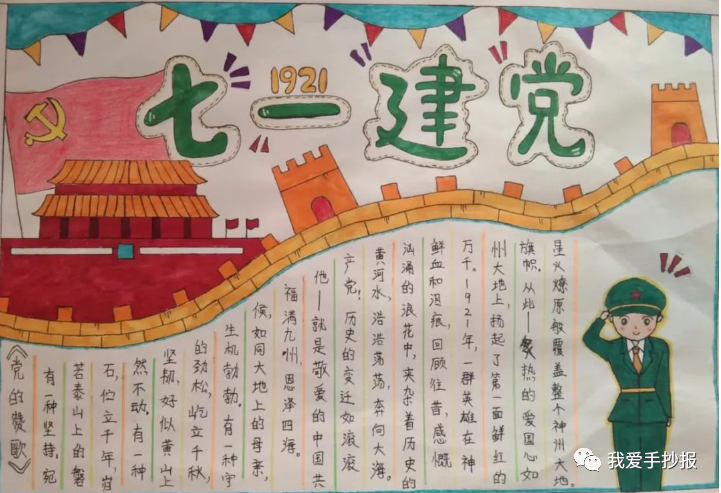 七一建党
1921
《党的赞歌》
有一种坚持，宛
若泰山上的磐
石，伫立千年，岿
然不动。有一种
坚韧，好似黄山上
的劲松，屹立千秋，
生机勃勃。有一种守
候，如同大地上的母亲，
福满九州，恩泽四海。
他—就是敬爱的中国共
产党！历史的变迁如滚滚
黄河水，浩浩荡荡，奔向大海。
汹涌的浪花中，夹杂着历史的
鲜血和泪痕，回顾往昔，感慨
万千。1921年，一群英雄在神
州大地上，扬起了第一面鲜红的
旗帜，从此一热的爱国心如
星火燎原般覆盖整个神州大地。
我爱手抄报